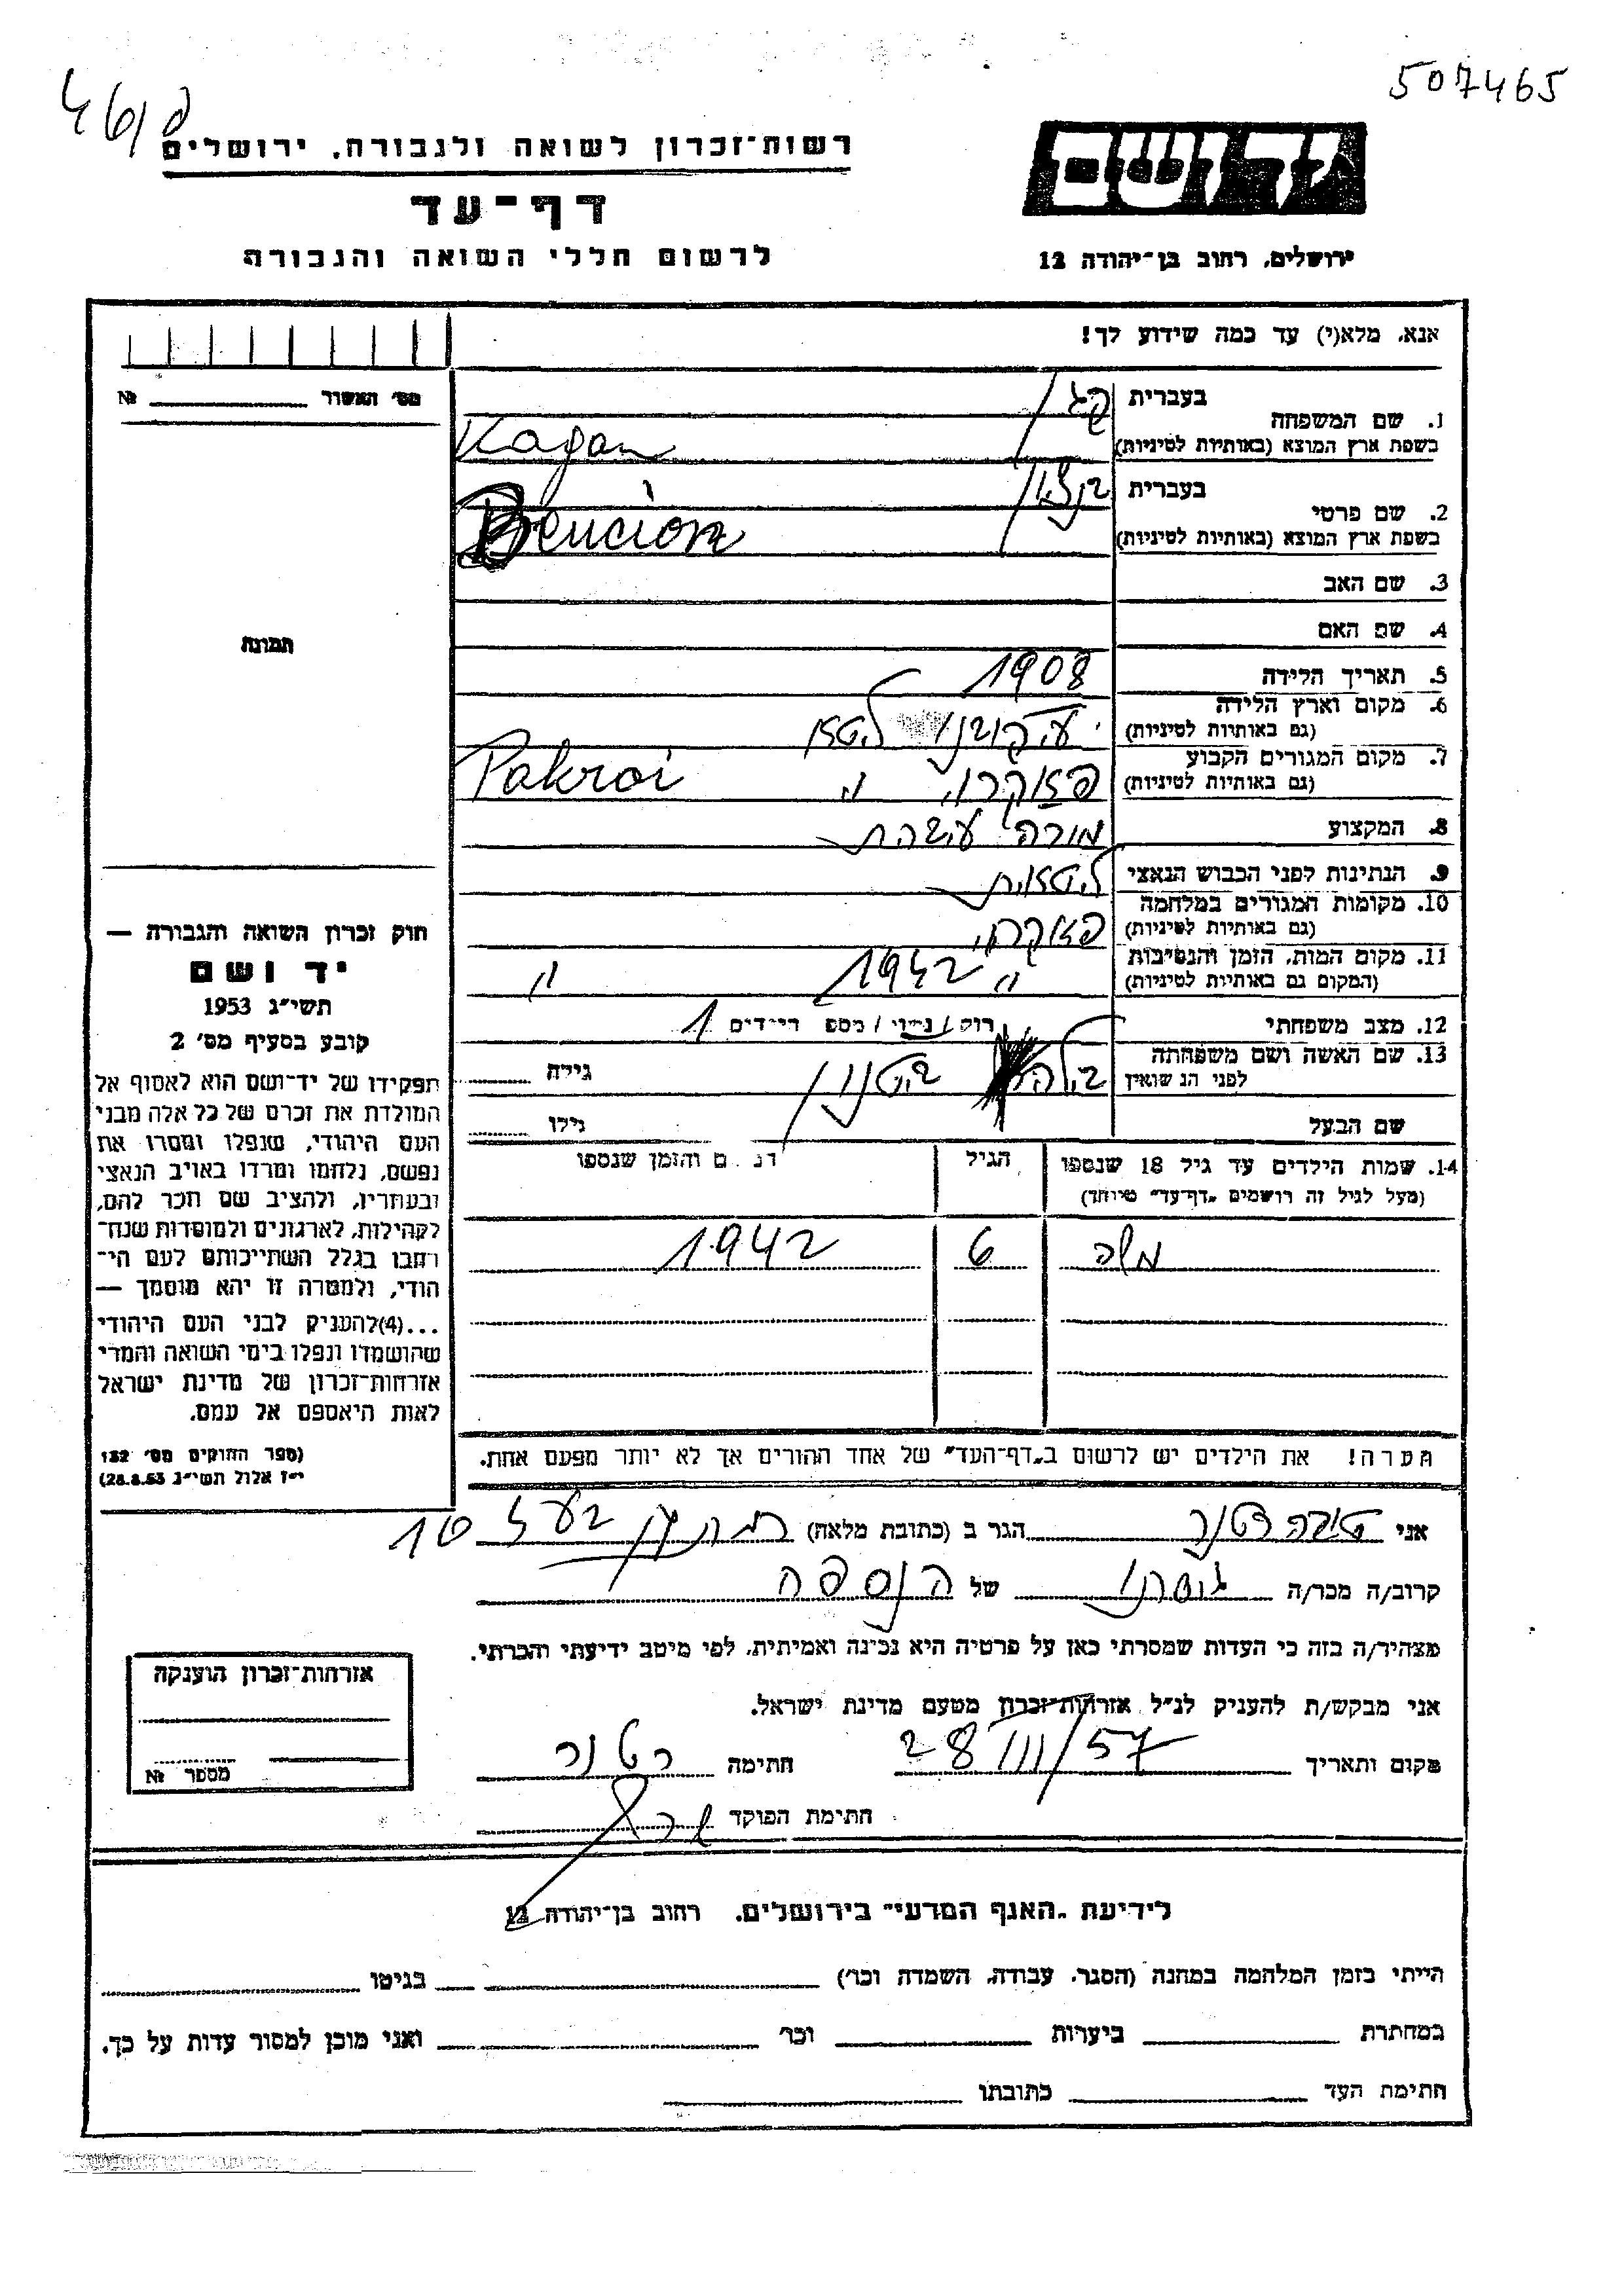 507465
46/8
רשות־זכרון לשואה ולגבורה, ירושלים
דף־עד
לרשום חללי השואה והגבורה
יד ושם
ירושלים, רחוב בן־יהודה 12
אנא, מלא(י) עד כמה שידוע לך!
מס׳ האשור № 
1. שם המשפחה בעברית קגן
בשפת ארץ המוצא (באותיות לטיניות) Kagan
2. שם פרטי בעברית בנציון
בשפת ארץ המוצא (באותיות לטיניות) Bencion
3. שם האב
4. שם האם
תמונה
5. תאריך הלידה 1908
6. מקום וארץ הלידה (גם באותיות לטיניות) לטא
7. מקום המגורים הקבוע (גם באותיות לטיניות) פאקרוי " Pakroi
8. המקצוע מורה
9. הנתינות לפני הכבוש הנאצי לטאית
10. מקומות המגורים במלחמה (גם באותיות לטיניות) פאקרוי
11. מקום המות, הזמן והנסיבות (המקום גם באותיות לטיניות) " 1942 "
12. מצב משפחתי רוק/נשוי/מספ הילדים 1
13. שם האשה ושם משפחתה לפני הנשואין גילה
שם הבעל גילו
14. שמות הילדים עד גיל 18 שנספו הגיל המקום והזמן שנספו
(מעל לגיל זה רושמים „דף־עד" מיוחד)
משה 6 1942
הערה! את הילדים יש לרשום ב„דף־העד" של אחד ההורים אך לא יותר מפעם אחת.
חוק זכרון השואה והגבורה —
יד ושם
תשי״ג 1953
קובע בסעיף מס׳ 2
תפקידו של יד־ושם הוא לאסוף אל
המולדת את זכרם של כל אלה מבני
העם היהודי, שנפלו ומסרו את
נפשם, נלחמו ומרדו באויב הנאצי
ובעוזריו, ולהציב שם וזכר להם,
לקהילות, לארגונים ולמוסדות שנח־
רבו בגלל השתייכותם לעם הי־
הודי, ולמטרה זו יהא מוסמך —
...(4) להעניק לבני העם היהודי
שהושמדו ונפלו בימי השואה והמרי
אזרחות־זכרון של מדינת ישראל
לאות היאספם אל עמם.
(ספר החוקים מס׳ 132
י״ז אלול תשי״ג 28.8.53)
אני הגר ב (כתובת מלאה) רמת גן 10
קרוב/ה מכר/ה גיסתו של הנספה
מצהיר/ה בזה כי העדות שמסרתי כאן על פרטיה היא נכונה ואמיתית, לפי מיטב ידיעתי והכרתי.
אני מבקש/ת להעניק לנ״ל אזרחות־זכרון מטעם מדינת ישראל.
מקום ותאריך 28/III/57 חתימה רטנר
חתימת הפוקד
אזרחות־זכרון הוענקה
מספר №
לידיעת „האגף המדעי" בירושלים, רחוב בן־יהודה 12
הייתי בזמן המלחמה במחנה (הסגר, עבודה, השמדה וכו׳) בגיטו
במחתרת ביערות וכו׳ ואני מוכן למסור עדות על כך.
חתימת העד כתובתו